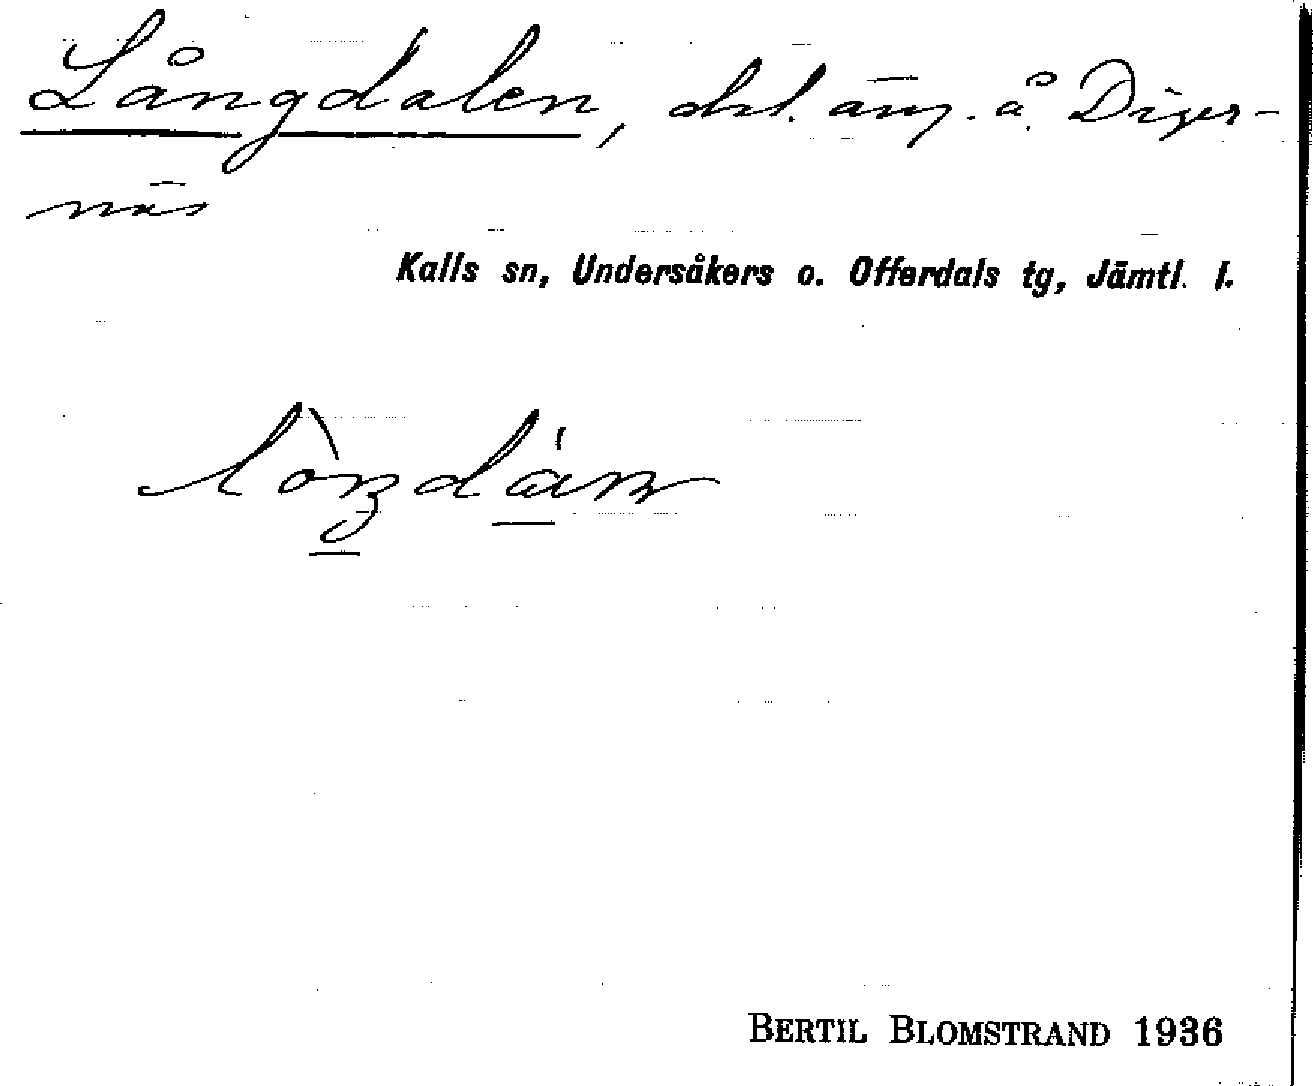 Långdalen, del. äng. å Diger-
näs
Kalls sn, Undersåkers o. Offerdals tg, Jämtl. l.
BERTIL BLOMSTRAND 1936